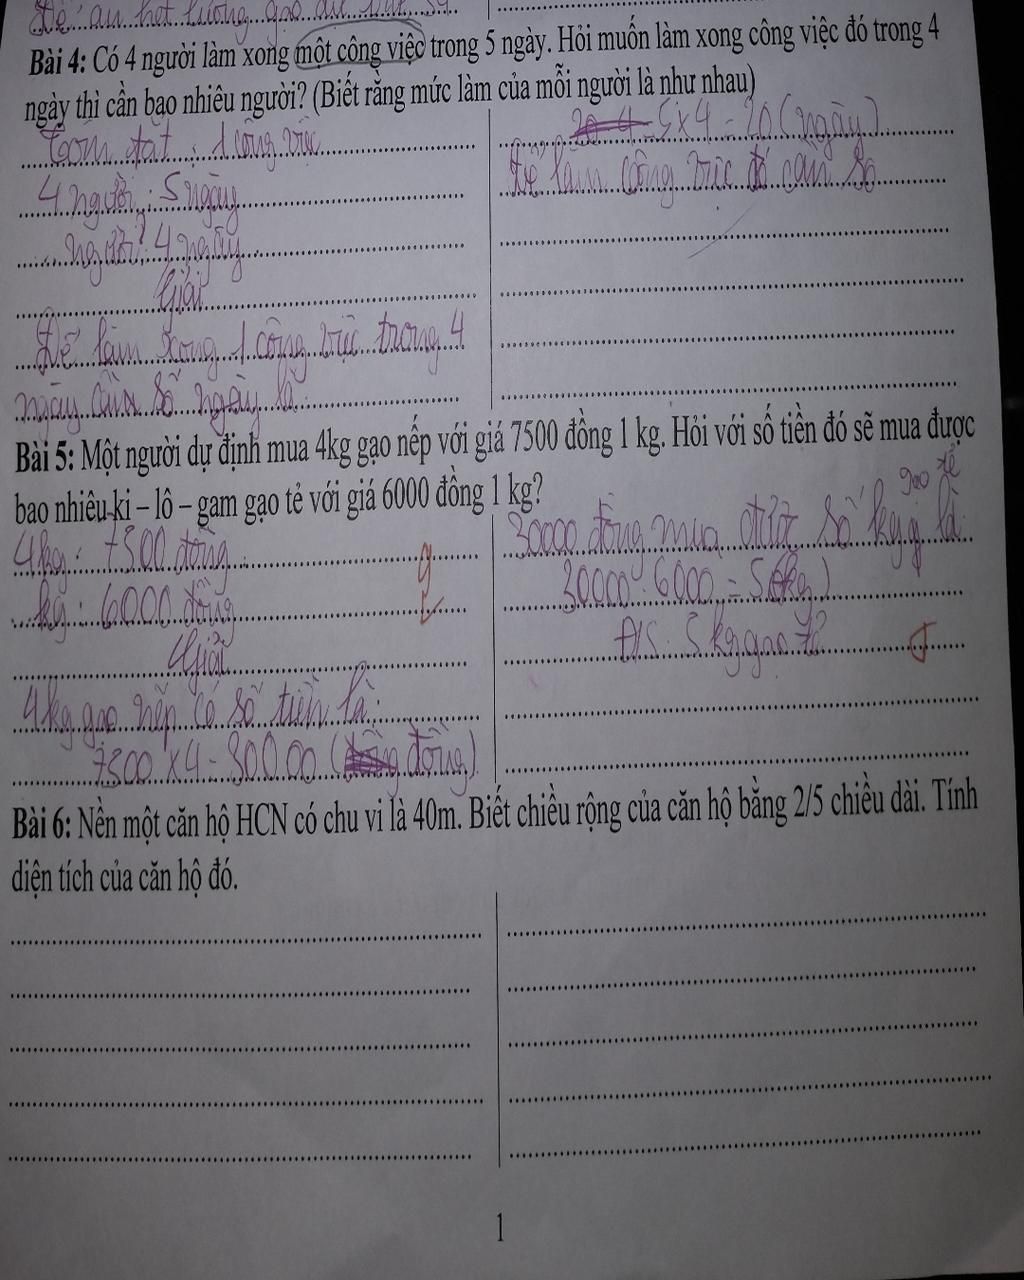 Để ăn hết lượng gạo đó
Bài 4: Có 4 người làm xong một công việc trong 5 ngày. Hỏi muốn làm xong công việc đó trong 4
ngày thì cần bao nhiêu người? (Biết rằng mức làm của mỗi người là như nhau)
Tóm tắt : 1 công việc
4 người : 5 ngày
... người? 4 ngày
Giải
Để làm xong 1 công việc trong 4
ngày cần số ngày là
5 x 4 = 20 (ngày)
Để làm công việc đó cần số
Bài 5: Một người dự định mua 4kg gạo nếp với giá 7500 đồng 1 kg. Hỏi với số tiền đó sẽ mua được
bao nhiêu ki – lô – gam gạo tẻ với giá 6000 đồng 1 kg?
4kg : 7500 đồng
... kg : 6000 đồng
Giải
4kg gạo nếp có số tiền là :
7500 x 4 = 30000 (đồng)
gạo tẻ
30000 đồng mua được số kg là :
30000 : 6000 = 5 (kg)
Đ/S : 5 kg gạo tẻ
Bài 6: Nền một căn hộ HCN có chu vi là 40m. Biết chiều rộng của căn hộ bằng 2/5 chiều dài. Tính
diện tích của căn hộ đó.
1